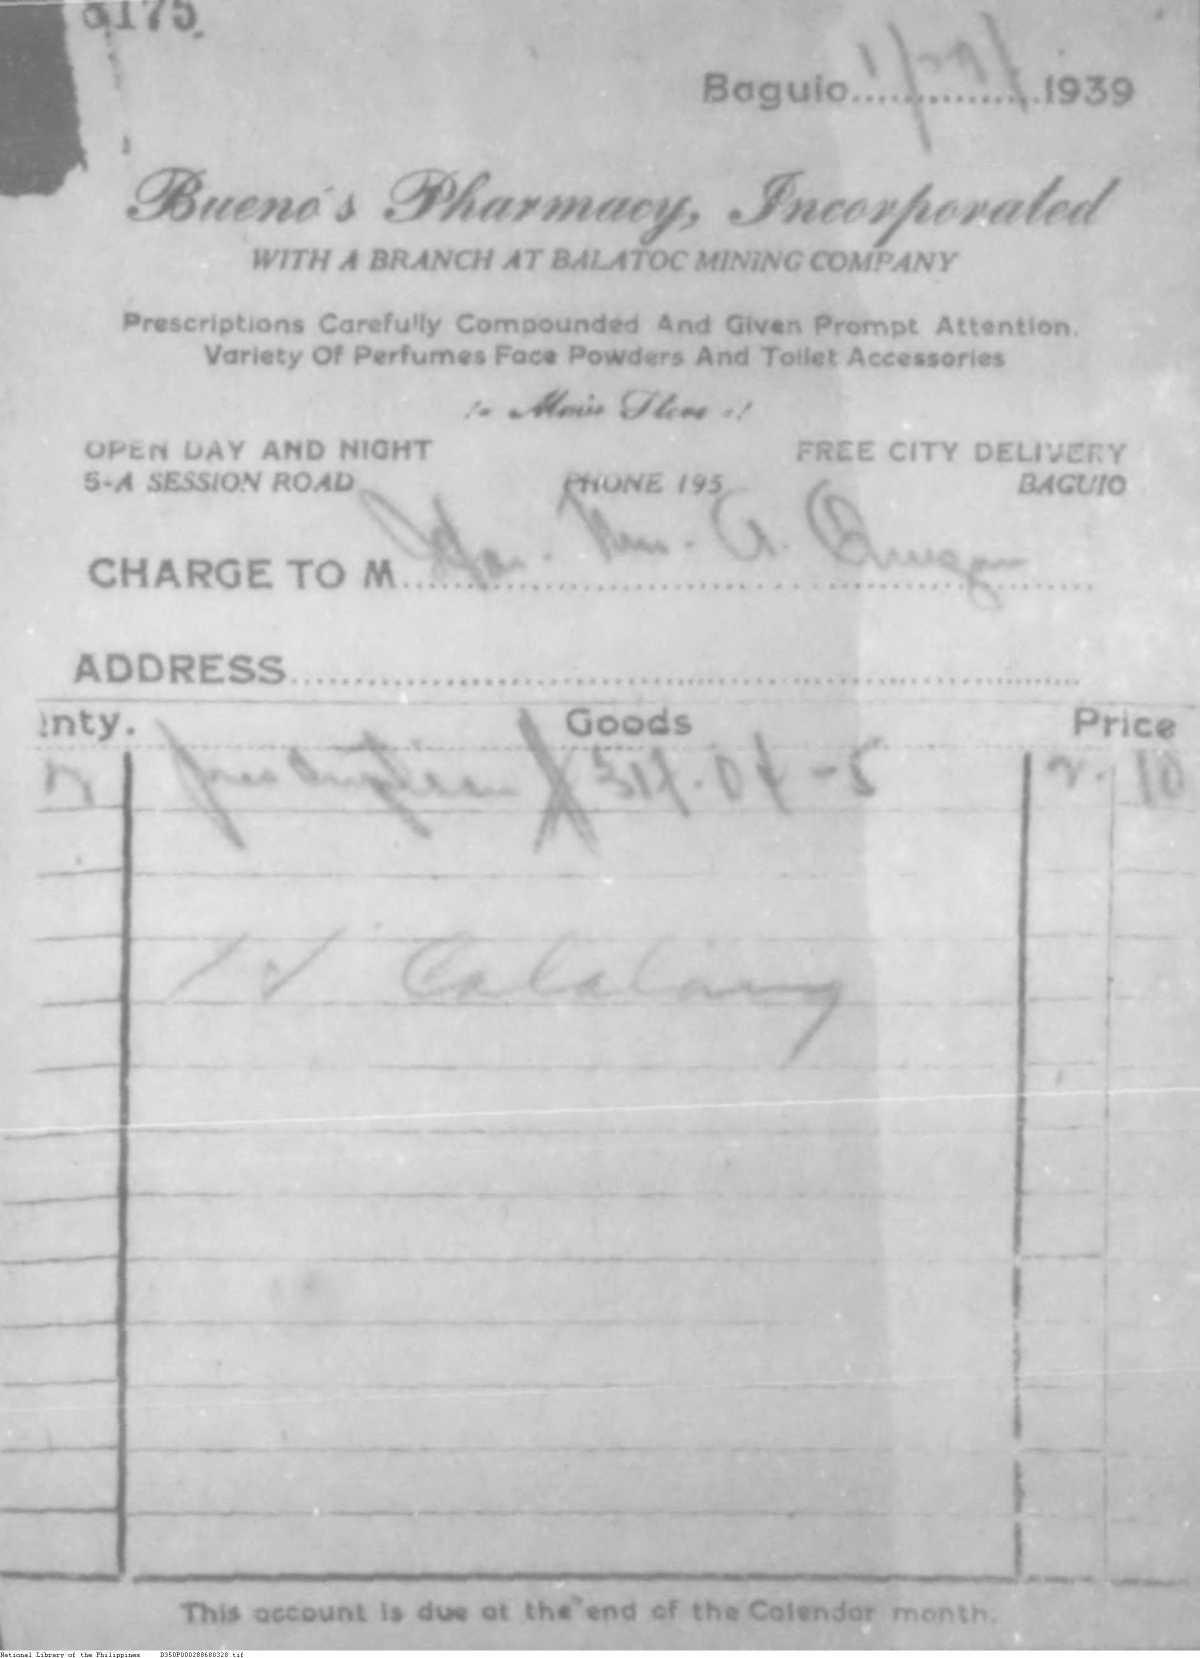 8175.
Baguio 1939
Bueno's Pharmacy, Incorporated
WITH A BRANCH AT BALATOC MINING COMPANY
Prescriptions Carefully Compounded And Given Prompt Attention.
Variety Of Perfumes Face Powders And Toilet Accessories
OPEN DAY AND NIGHT FREE CITY DELIVERY
5-A SESSION ROAD PHONE 195 BAGUIO
CHARGE TO M
ADDRESS
nty. Goods Price
prescription 2. 10
This account is due at the end of the Calendar month.
National Library of the Philippines D350P000288680328.tif